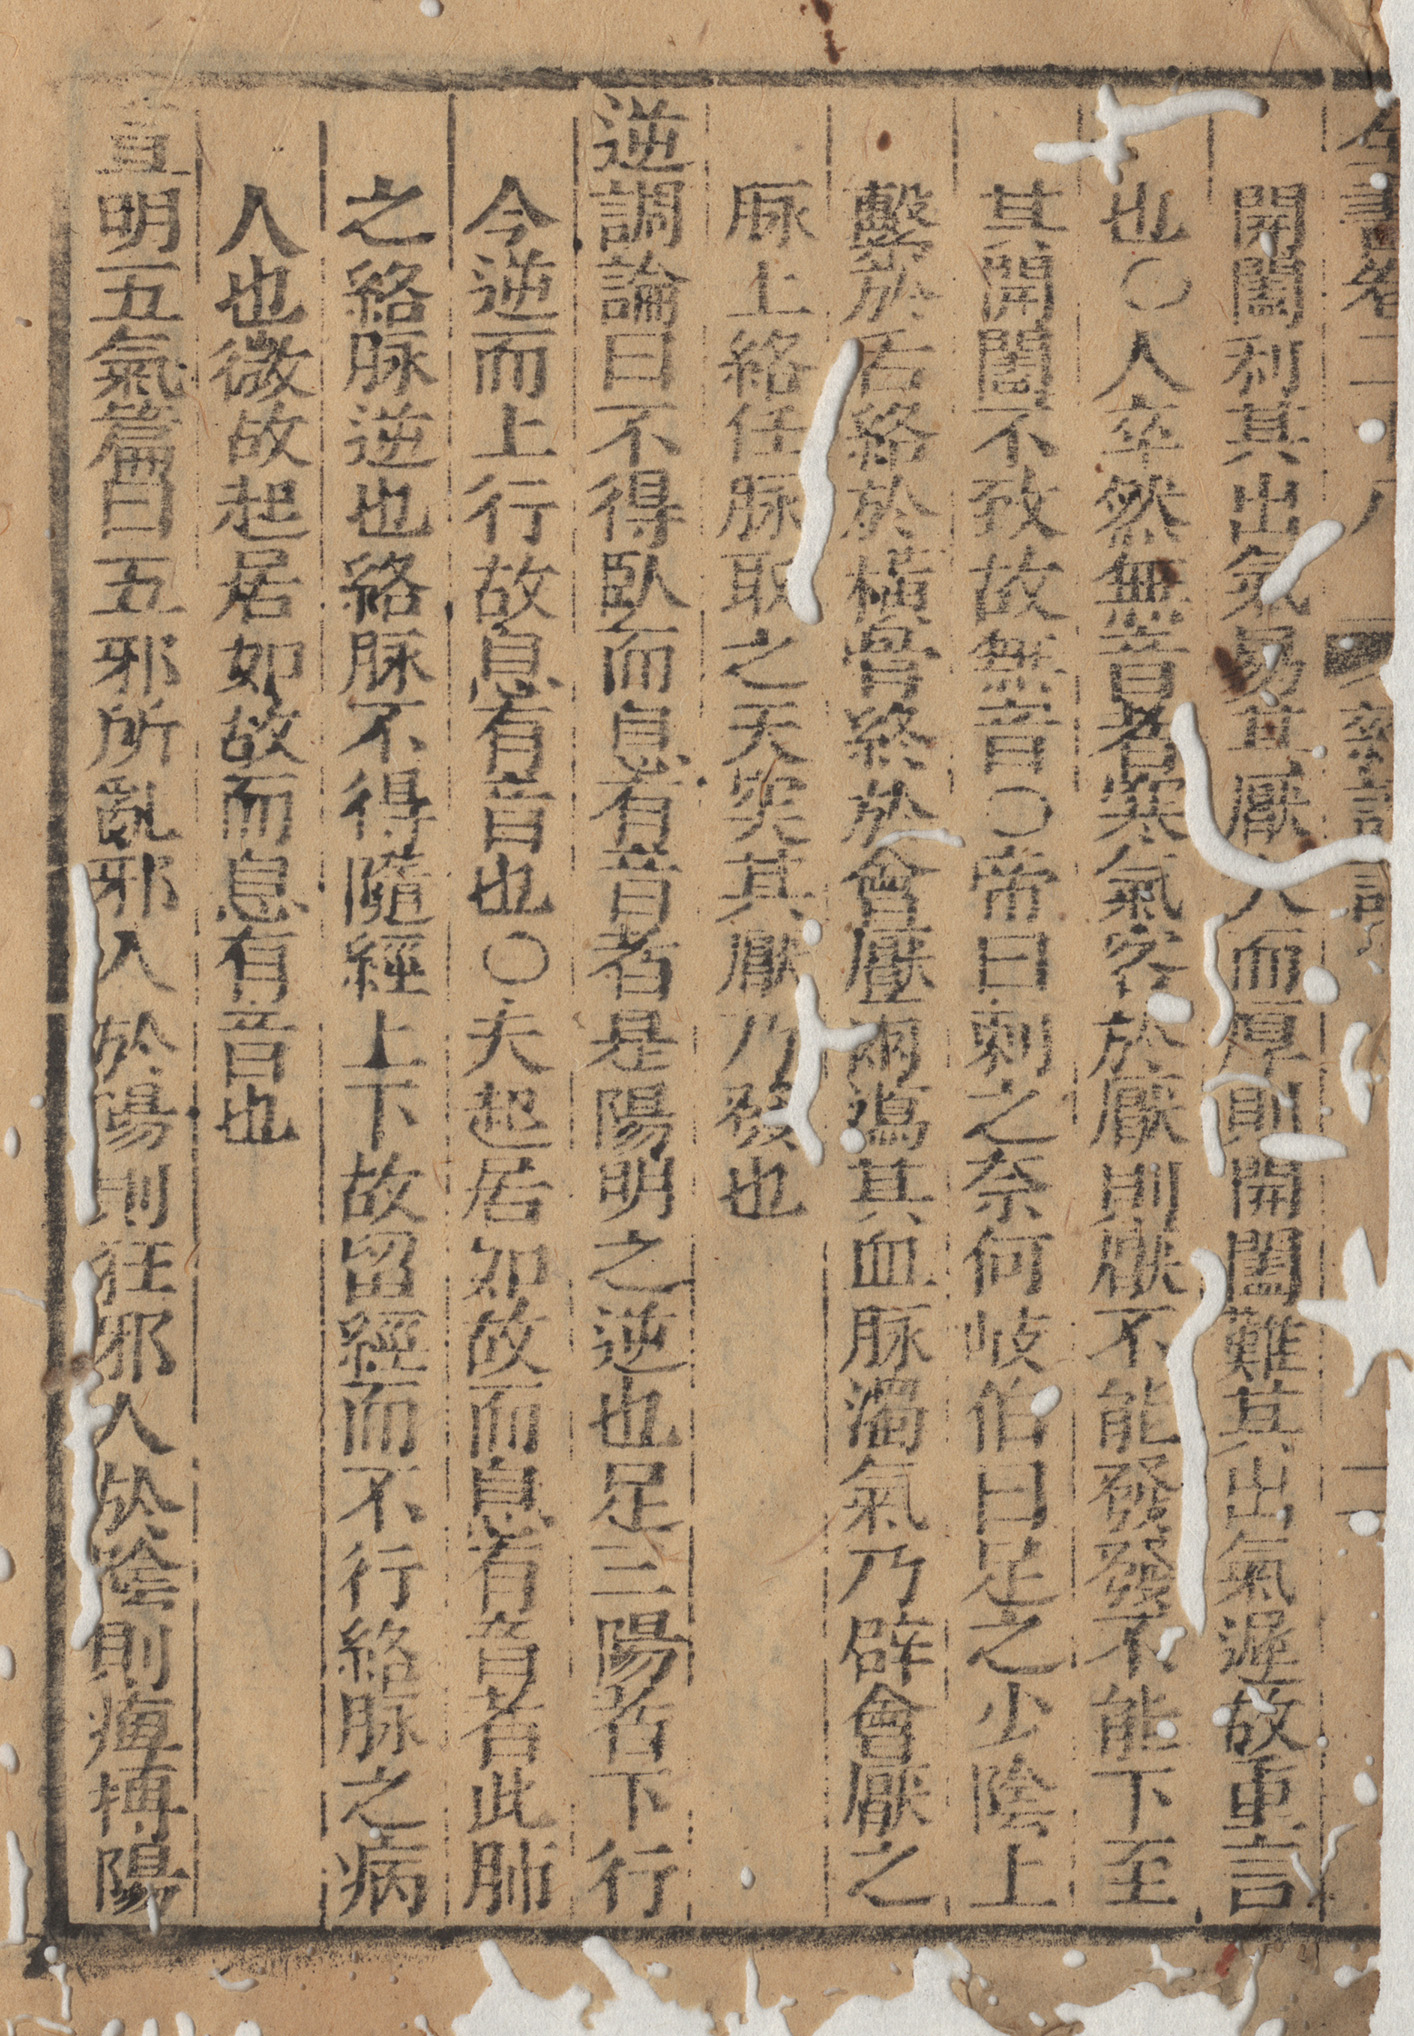 全書卷二十八 聲瘖
開闔利其出氣易其厭大而厚則開闔難其出氣遲故重言
也○人卒然無音者寒氣客於厭則厭不能發發不能下至
其開闔不致故無音○帝曰刺之奈何岐伯曰足之少陰上
繫於舌絡於橫骨終於會厭兩瀉其血脉濁氣乃辟會厭之
脉上絡任脉取之天突其厭乃發也
逆調論曰不得臥而息有音者是陽明之逆也足三陽者下行
今逆而上行故息有音也○夫起居如故而息有音者此肺
之絡脉逆也絡脉不得隨經上下故留經而不行絡脉之病
人也微故起居如故而息有音也
宣明五氣篇曰五邪所亂邪入於陽則狂邪入於陰則痺搏陽